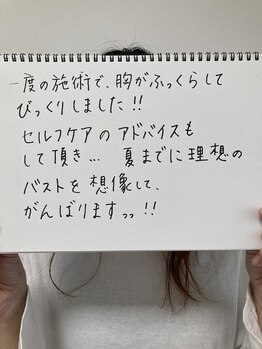 一度の施術で、胸がふっくらして
びっくりしました!!
セルフケアのアドバイスも
して頂き… 夏までに理想の
バストを想像して、
がんばりますっっ!!